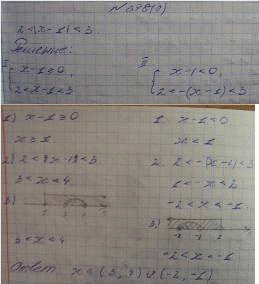 2<|x-1|<3.
Решение:
I
x-1≥0,
2<x-1<3
II
x-1<0,
2<-(x-1)<3
1) x-1≥0
x≥1
2) 2<x-1<3
3<x<4
3)
3<x<4
1. x-1<0
x<1
2. 2<-(x-1)<3
1<-x<2
-2<x<-1
3)
-2<x<-1
Ответ: x∈(3,4)∪(-2,-1)